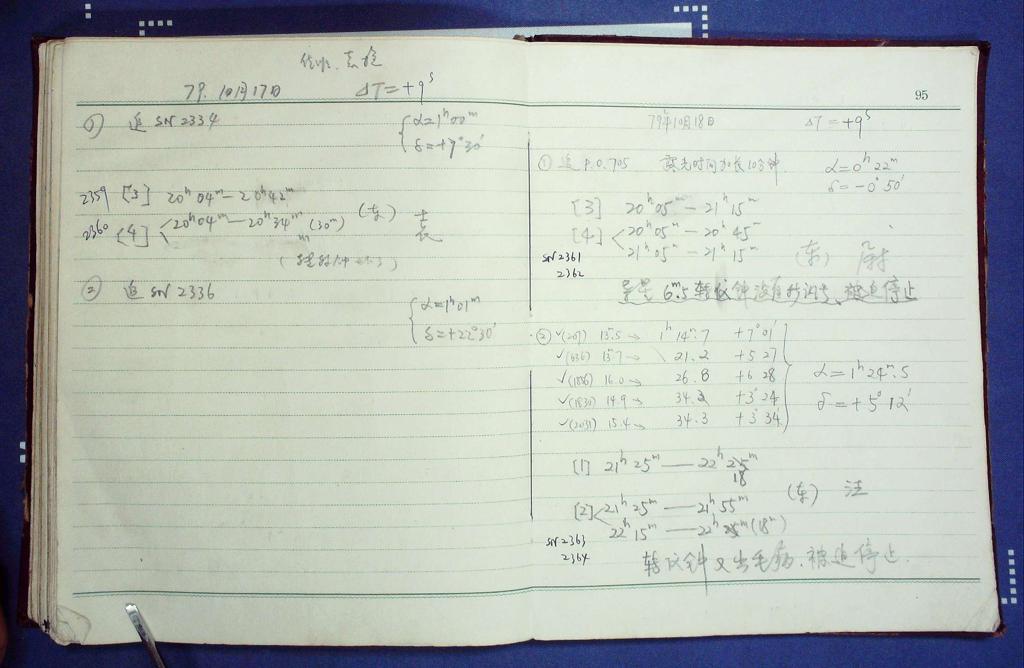 79. 10月17日 ΔT=+9ˢ
① 追 SN 2334 α=1ʰ00ᵐ
δ=+7°30′
2359 [3] 20ʰ04ᵐ—20ʰ42ᵐ
2360 [4] 20ʰ04ᵐ—20ʰ34ᵐ (30ᵐ) (东)
② 追 SN 2336 α=1ʰ01ᵐ
δ=+22°30′
95
79年10月18日 ΔT=+9ˢ
① 追 P.O.705 露光时间加长10分钟. α=0ʰ22ᵐ
δ=-0°50′
[3] 20ʰ05ᵐ—21ʰ15ᵐ
[4] 20ʰ05ᵐ—20ʰ45ᵐ
21ʰ05ᵐ—21ʰ15ᵐ (东)
SN2361
2362
导星 6ᵐ.5 转仪钟没有 被迫停止
② ✓(207) 15.5→ 1ʰ14ᵐ.7 +7°01′
✓(636) 15.7→ 21.2 +5 27
✓(1886) 16.0→ 26.8 +6 28
✓(1830) 14.9→ 34.2 +3 24
✓(2031) 15.4→ 34.3 +3 34
α=1ʰ24ᵐ.5
δ=+5°12′
[1] 21ʰ25ᵐ—22ʰ25ᵐ
18
[2] 21ʰ25ᵐ—21ʰ55ᵐ (东) 汪
22ʰ15ᵐ—22ʰ (18ᵐ)
SN2363
2364
转仪钟又出毛病.被迫停止.